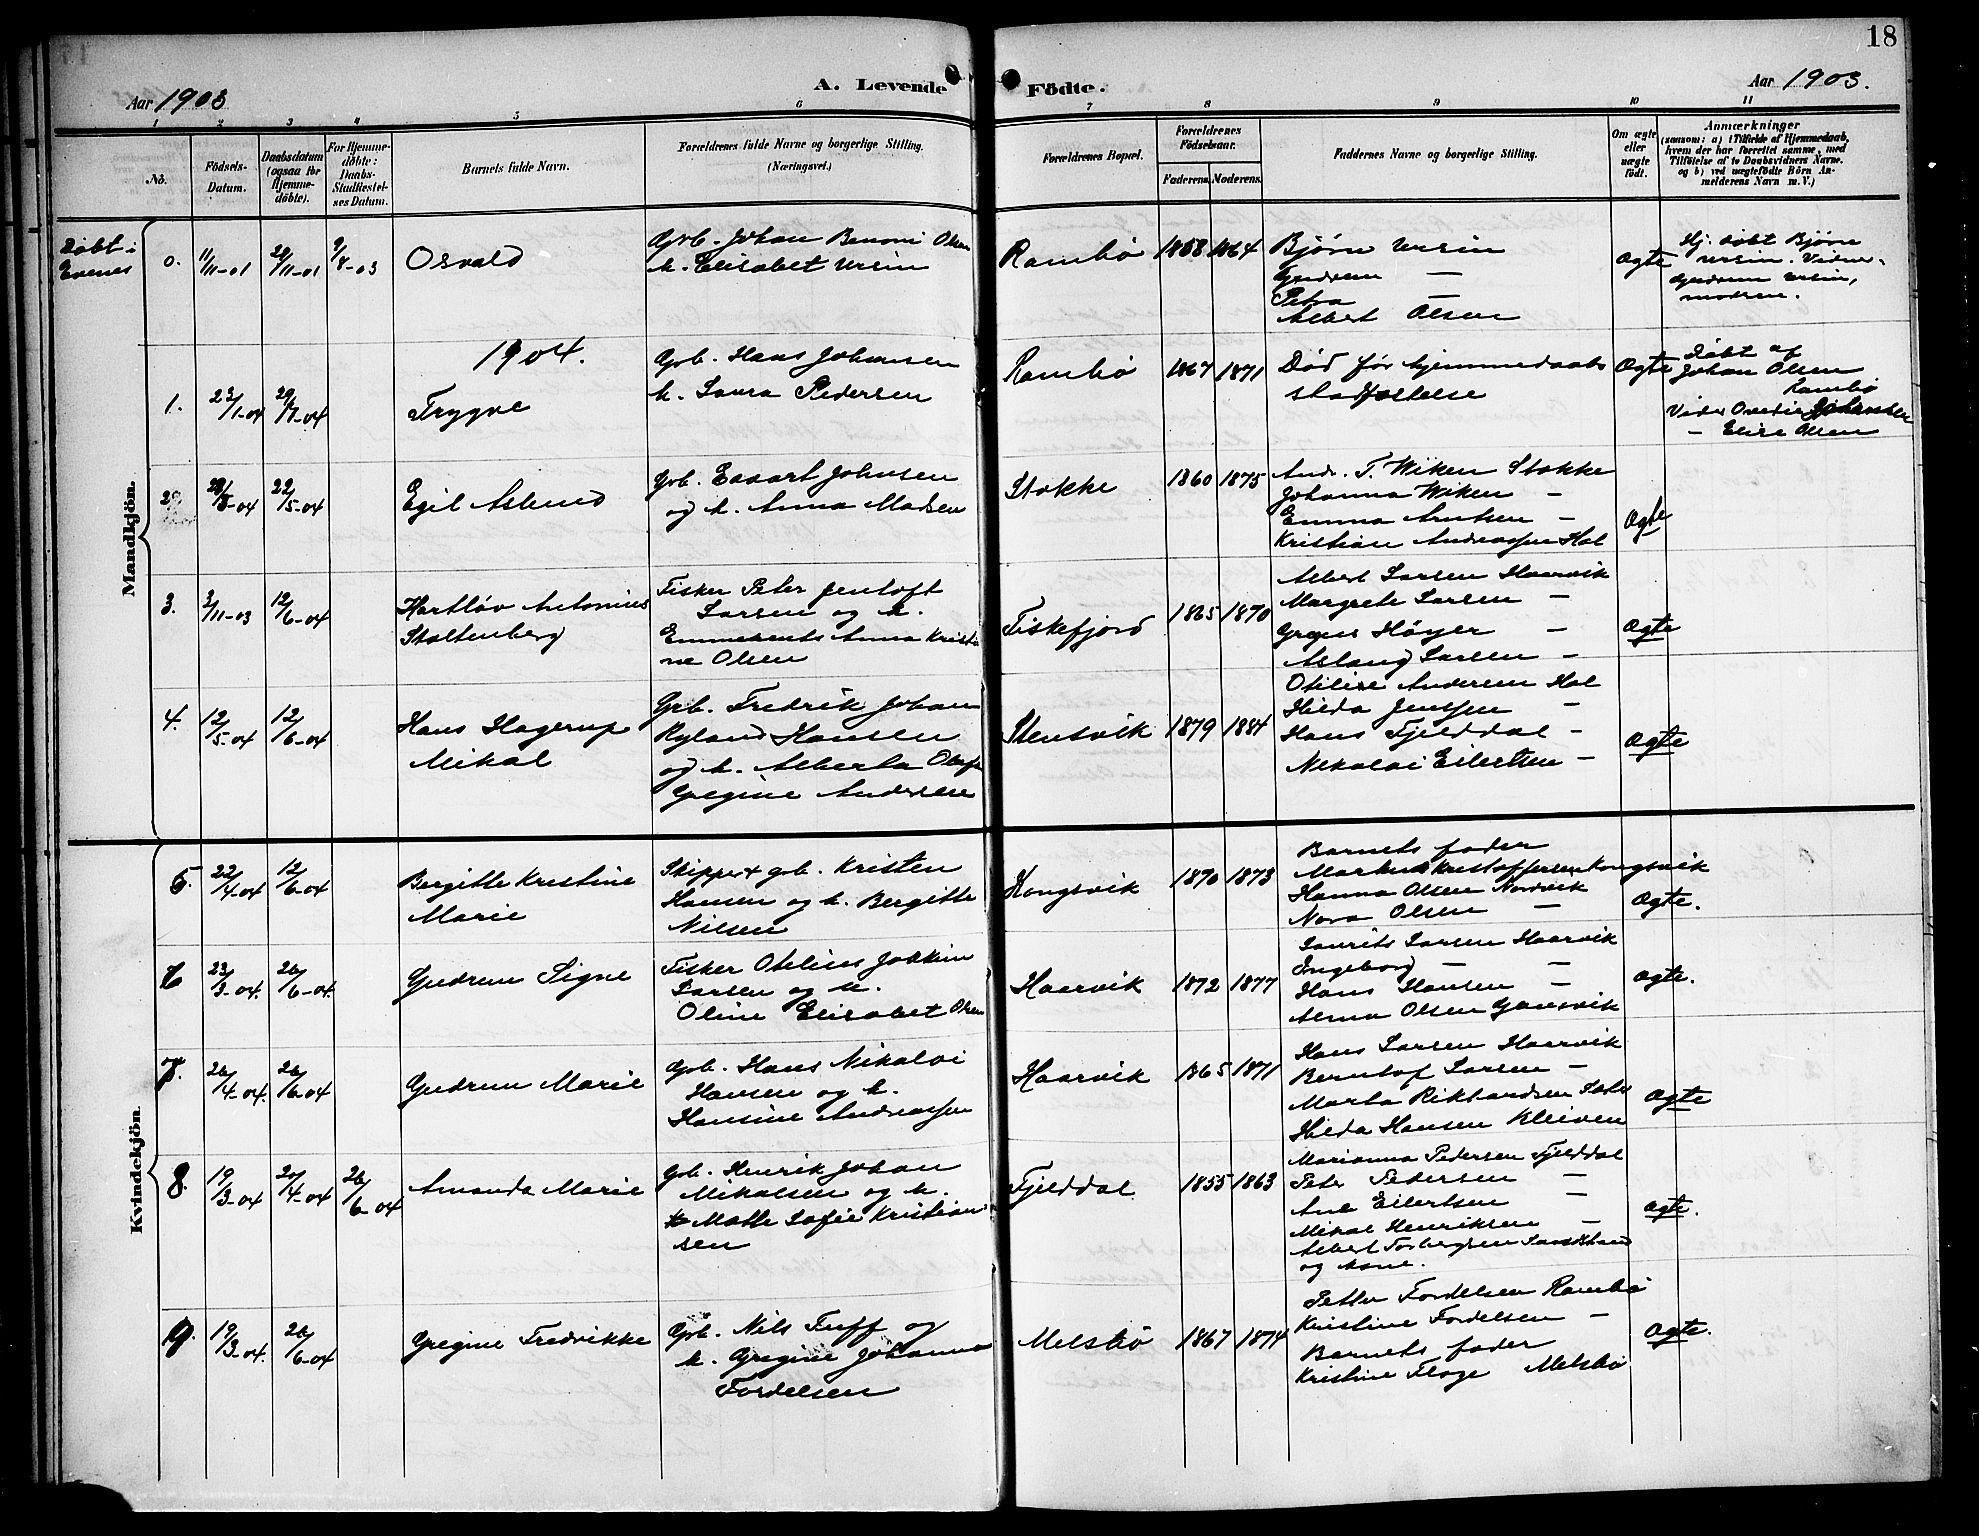 18
Aar 1903
A. Levende
Födte.
Aar 1903.
1 2 3 4 5 6 7 8 9 10 11
No.
Födsels-
Datum.
Daabsdatum
(ogsaa for
Hjemme-
döbte).
For Hjemme-
döbte:
Daabs-
Stadfæstel-
ses Datum.
Barnets fulde Navn.
Forældrenes fulde Navne og borgerlige Stilling.
(Næringsvei.)
Forældrenes Bopæl.
Forældrenes
Födselsaar.
Faderens. Moderens.
Faddernes Navne og borgerlige Stilling.
Om ægte
eller
uægte
födt.
Anmærkninger
(saasom: a) i Tilfælde af Hjemmedaab,
hvem der har forrettet samme, med
Tilföielse af to Daabsvidners Navne,
og b) ved uægtefödte Börn An-
melderens Navn m. V.)
Mandkjön.
Døbt i
Evenes
0. 11/11-01 29/11-01 9/8-03
Osvald
Grb. Johan Benoni Olsen
h. Elisabet Ursin
Rambø 1858 1864
Bjørn Ursin
Gudrun —
Petra —
Albert Olsen
Ægte
Hj. døbt Bjørn
Ursin. Vidner
Gudrun Ursin,
modren.
1904.
1. 23/1-04 29/1-04
Trygve
Grb. Hans Johansen
h. Laura Pedersen
Rambø 1867 1871
Død før hjemmedaabs
stadfæstelse
Ægte
Døbt af
Johan Olsen
Rambø
Vidner Ovedie Johansen
— Elise Olsen
2. 28/3-04 22/5-04
Egil Aslund
Grb. Edvart Johnsen
og h. Anna Madsen
Stokke 1860 1875
Andr. T. Wiken Stokke
Johanna Wiken —
Emma Arntsen —
Kristian Andreassen Hol
Ægte
3. 3/11-03 12/6-04
Hartløv Antonius
Stoltenberg
Fisker Peter Jentoft
Larsen og h.
Emmerents Anna Kristi
ne Olsen
Fiskefjord 1865 1870
Albert Larsen Haarvik
Margrete Larsen —
Høyer —
Aslaug Larsen —
Ægte
4. 12/5-04 12/6-04
Hans Hagerup
Mikal
Grb. Fredrik Johan
Ryland Hansen
og h. Alberta
Gregine Andersen
Stensvik 1879 1884
Otilise Andersen Hol
Hilda Jenssen —
Hans Fjelddal —
Nikolai Eilertsen —
Ægte
Kvindekjön.
5. 22/4-04 12/6-04
Bergitte Kristine
Marie
Skipper & grb. Kristen
Hansen og h. Bergitte
Nilsen
Kongsvik 1870 1873
Barnets fader
Kristoffersen Kongsvik
Hanna Olsen Nordvik
Nora Olsen —
Ægte.
6 23/3-04. 26/6-04.
Gudrun Signe
Fisker Otelius Joakim
Larsen og h.
Oline Elisabet Olsen
Haarvik 1872 1877
Laurits Larsen Haarvik
Ingeborg — —
Hans Hansen —
Alma Olsen Gausvik
Ægte.
7. 26/4-04. 26/6-04
Gudrun Marie
Grb. Hans Nikolai
Hansen og h.
Hansine Andreassen
Haarvik 1865 1871
Hans Larsen Haarvik
Berntof Larsen —
Marta Rikhardsen
Hilda Hansen Kleiven
Ægte
8. 19/3-04 20/4-04 26/6-04
Amanda Marie
Grb. Henrik Johan
Mikalsen og h.
Matte Sofie Kristian
sen
Fjelddal. 1855 1863
Marianna Pedersen Fjelddal
Peter Pedersen —
Ane Eilertsen —
Mikal Henriksen —
Albert Torbergsen Sandstrand
og kone.
Ægte.
9. 19/3-04. 26/6-04
Gregine Fredrikke
Grb. Nils Tuff og
h. Gregine Johanna
Fordelsen
Melsbø 1867 1874
Petter Fordelsen Rambø
Kristine Fordelsen —
Barnets fader
Kristine Floge Melsbø
Ægte.